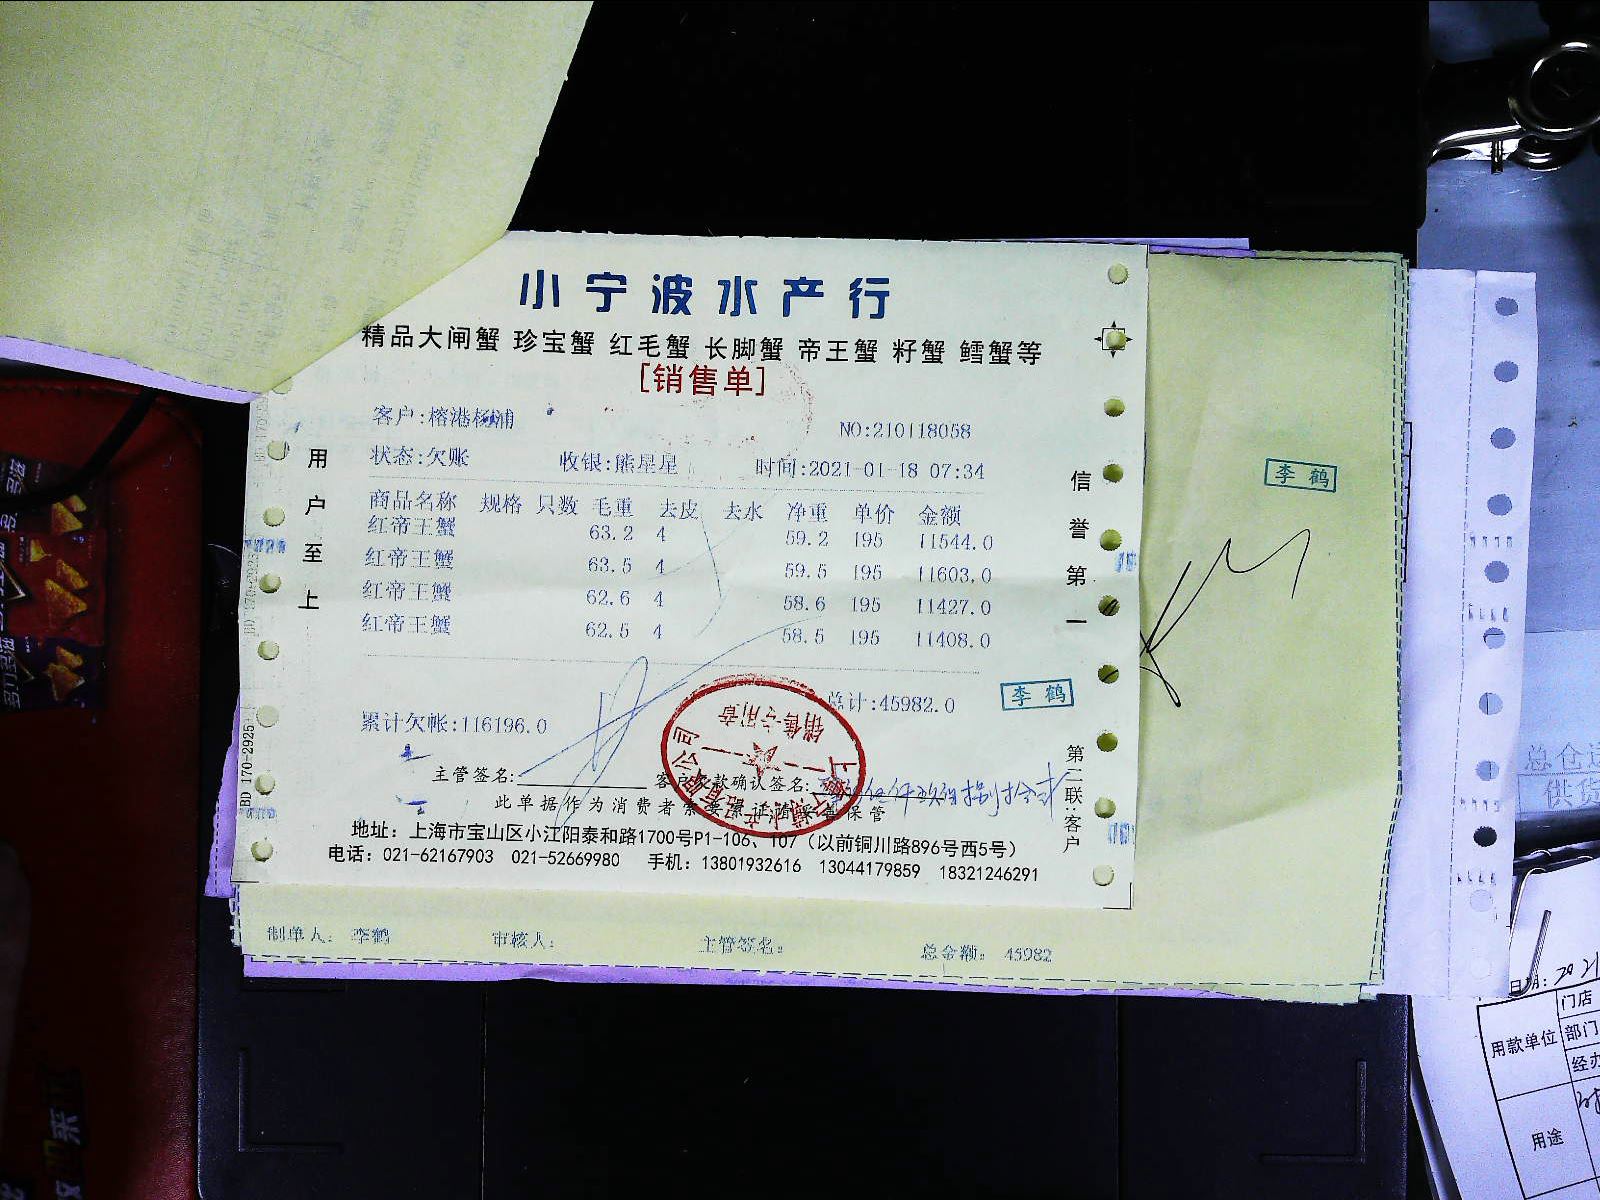 小宁波水产行
精品大闸蟹 珍宝蟹 红毛蟹 长脚蟹 帝王蟹 籽蟹 鳕蟹等
[销售单]
客户:榕港杨浦
NO:210118058
状态:欠账 收银:熊星星 时间:2021-01-18 07:34
商品名称 规格 只数 毛重 去皮 去水 净重 单价 金额
红帝王蟹 63.2 4 59.2 195 11544.0
红帝王蟹 63.5 4 59.5 195 11603.0
红帝王蟹 62.6 4 58.6 195 11427.0
红帝王蟹 62.5 4 58.5 195 11408.0
总计:45982.0
累计欠帐:116196.0
主管签名: 客户欠款确认签名:
此单据作为消费者索要票证请妥善保管
地址：上海市宝山区小江阳泰和路1700号P1-106、107（以前铜川路896号西5号）
电话：021-62167903 021-52669980 手机：13801932616 13044179859 18321246291
用户至上
信誉第一
第二联:客户
BD 170-2925
李鹤
李鹤
销售专用章
制单人: 李鹤 审核人: 主管签名: 总金额: 45982
总仓
供货
日期: 2021
用款单位
门店
部门
经办
用途